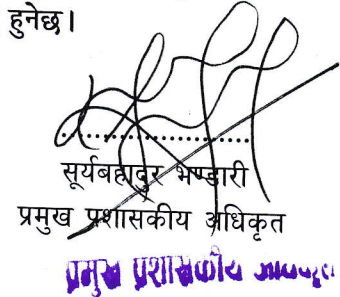 हुनेछ।
....................................
सूर्यबहादुर भण्डारी
प्रमुख प्रशासकीय अधिकृत
प्रमुख प्रशासकीय